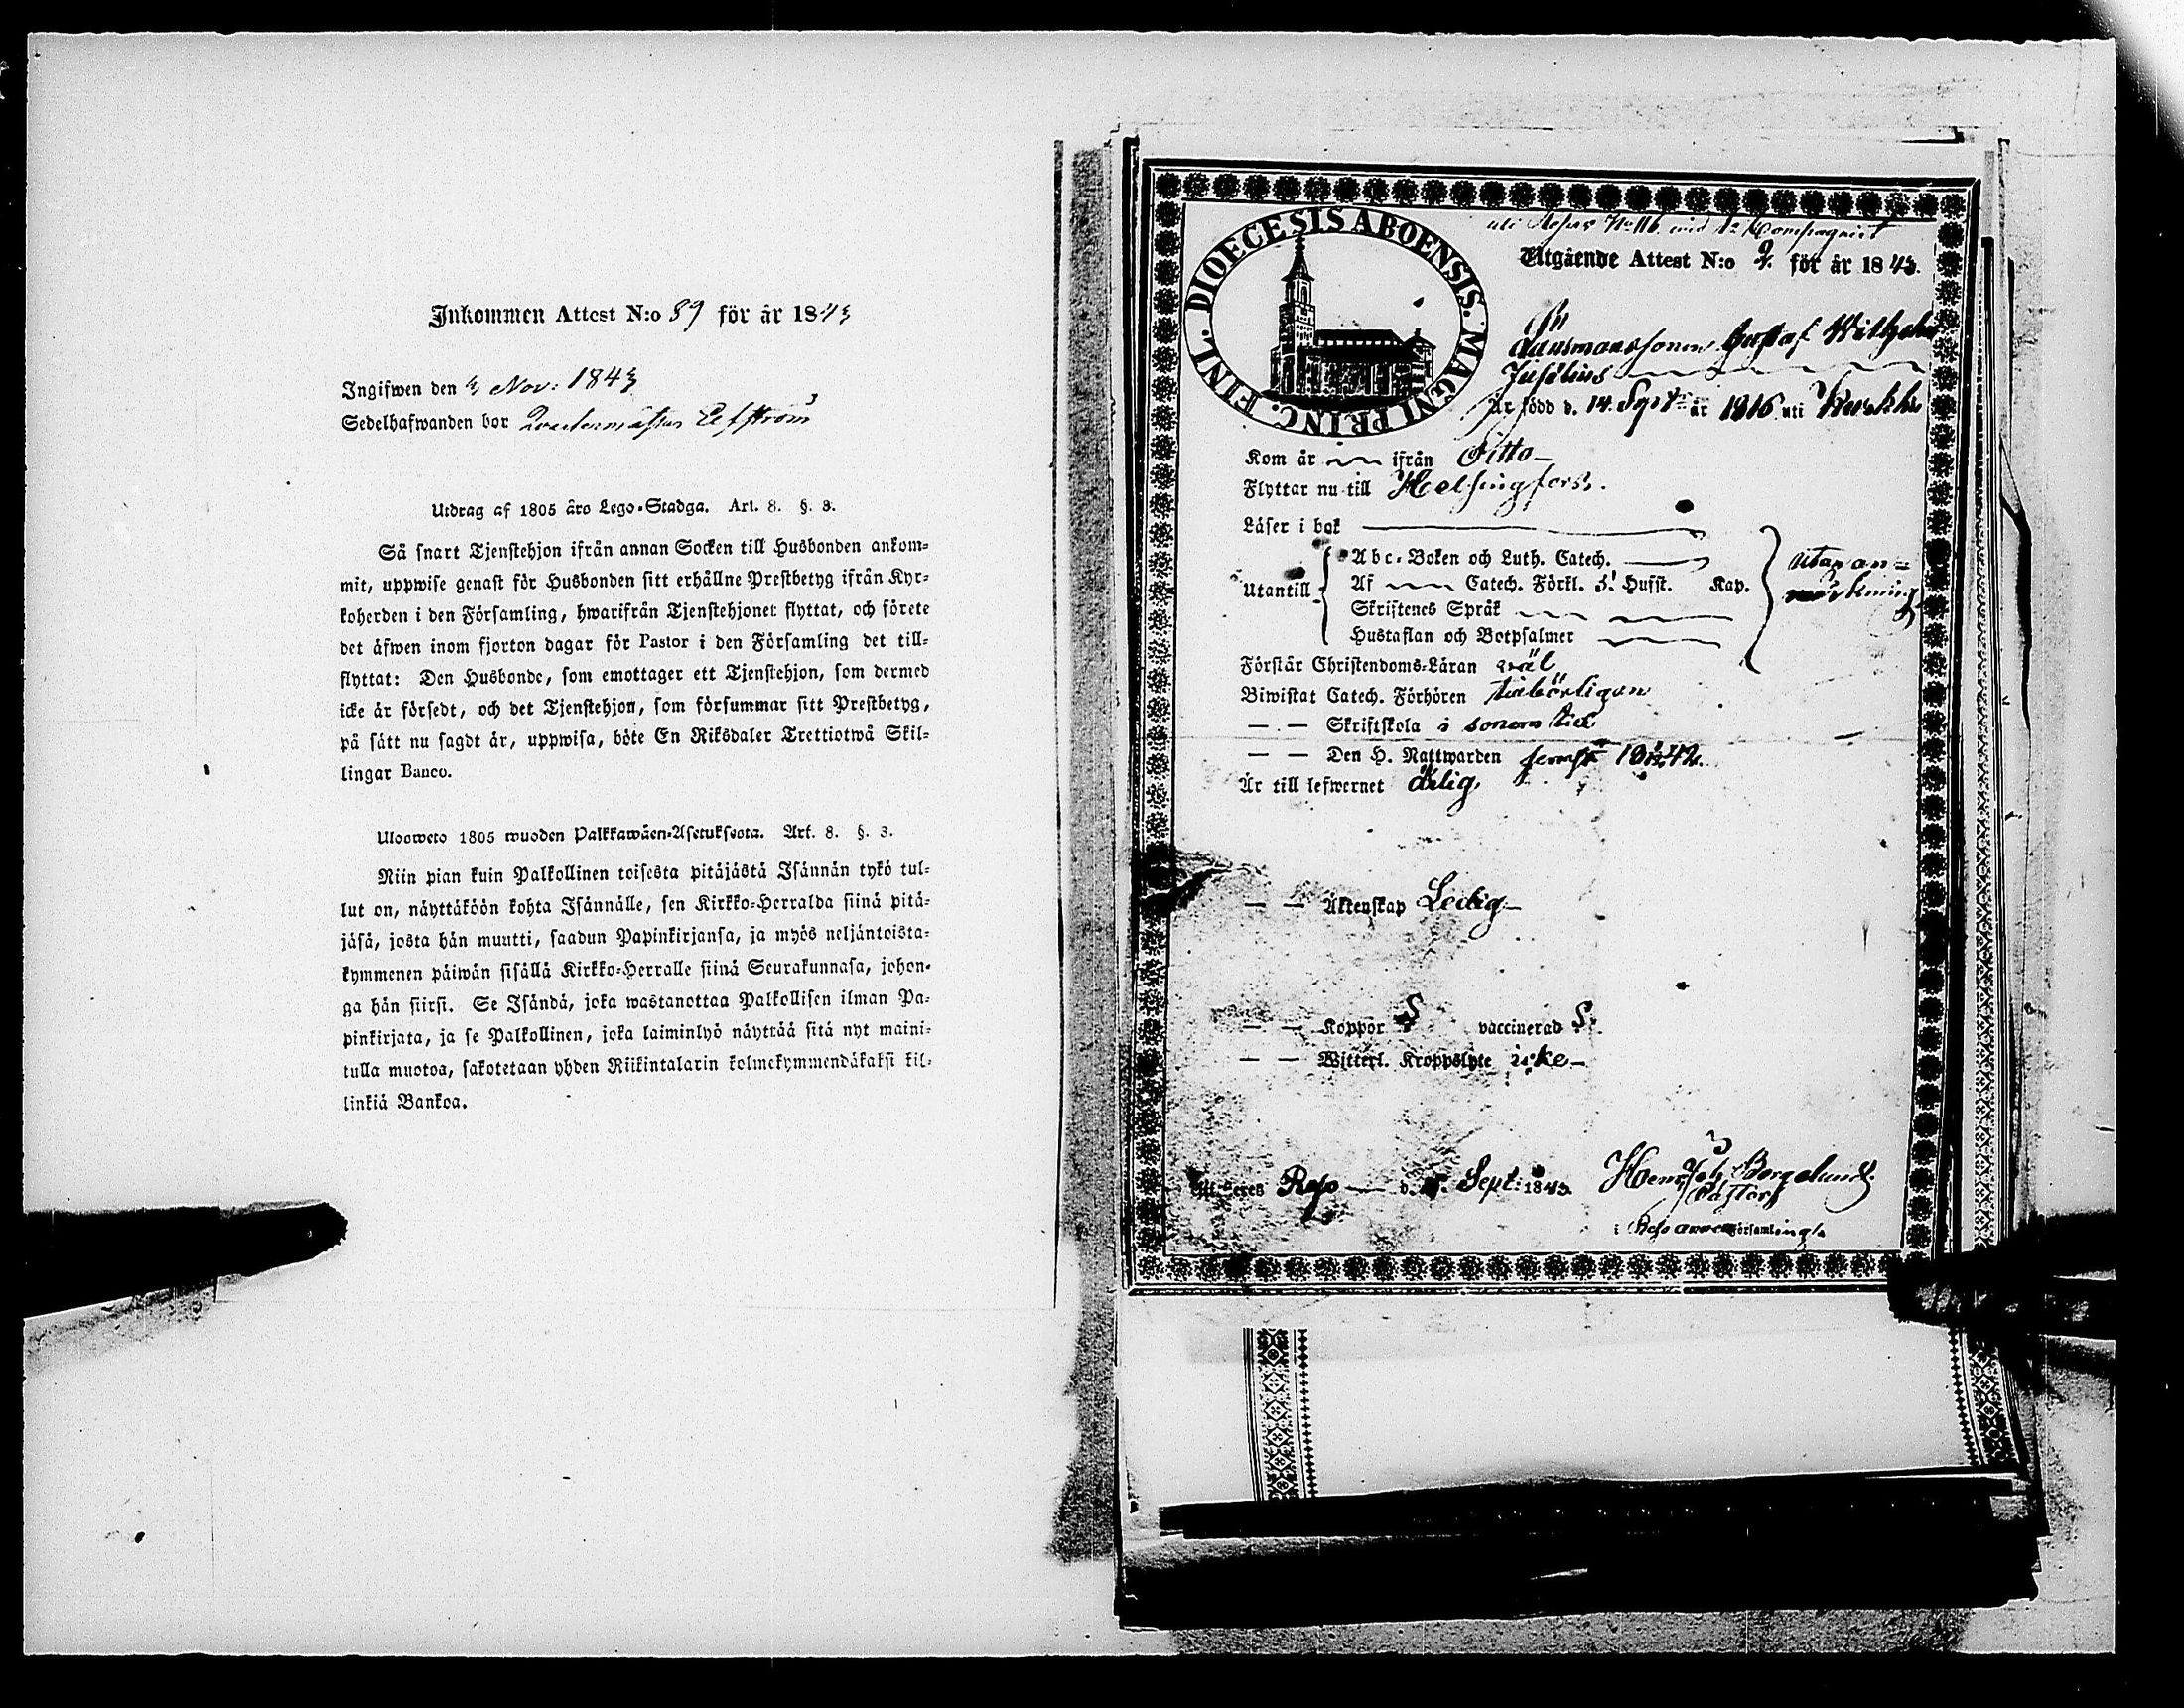 Inkommen Attest N:o 89 för år 1843
Ingifwen den 4 Nov: 1843
Sedelhafwanden bor
Utdrag af 1805 års Lego-Stadga. Art. 8. §. 3.
Så snart Tjenstehjon ifrån annan Socken till Husbonden ankom-
mit, uppwise genast för Husbonden sitt erhållne Prestbetyg ifrån Kyr-
koherden i den Församling, hwarifrån Tjenstehjonet flyttat, och förete
det äfwen inom fjorton dagar för Pastor i den Församling det till-
flyttat: Den Husbonde, som emottager ett Tjenstehjon, som dermed
icke är försedt, och det Tjenstehjon, som försummar sitt Prestbetyg,
på sätt nu sagdt är, uppwisa, böte En Riksdaler Trettiotwå Skil-
lingar Banco.
Ulosweto 1805 wuoden Palkkawäen-Asetuksesta. Art. 8. §. 3.
Niin pian kuin Palkollinen toisesta pitäjästä Isännän tykö tul-
lut on, näyttäköön kohta Isännälle, sen Kirkko-Herralda siinä pitä-
jäsä, josta hän muutti, saadun Papinkirjansa, ja myös neljäntoista-
kymmenen päiwän sisällä Kirkko-Herralle siinä Seurakunnasa, johon-
ga hän siirsi. Se Isändä, joka wastanottaa Palkollisen ilman Pa-
pinkirjata, ja se Palkollinen, joka laiminlyö näyttää sitä nyt maini-
tulla muotoa, sakotetaan yhden Riikintalarin kolmekymmendäkaksi kil-
linkiä Bankoa.
DIOECESIS ABOENSIS. MAGNI PRINC. FINL.
uti N:o 116 wid Compagniet
Utgående Attest N:o 2. för år 1843.
Gustaf Wilhelm
Är född d. 14 Sept: år 1816 uti
Kom år ifrån Ditto
Flyttar nu till Helsingfors.
Läser i bok
Utantill
Abc-Boken och Luth. Catech.
Af Catech. Förkl. Hufst. Kap.
Skriftenes Språk
Hustaflan och Botpsalmer
utan an-
märkning
Förstår Christendoms-Läran wäl
Biwistat Catech. Förhören tillbörligen
— — Skriftskola i sonom tid
— — Den H. Nattwarden 1842.
Är till lefwernet ärlig.
— — Äktenskap Ledig
— — Koppor vaccinerad
— — Witterl. Kroppslyte icke
Reso d. Sept: 1843. Henr. Joh. Borgelund
Pastor
i Reso församling